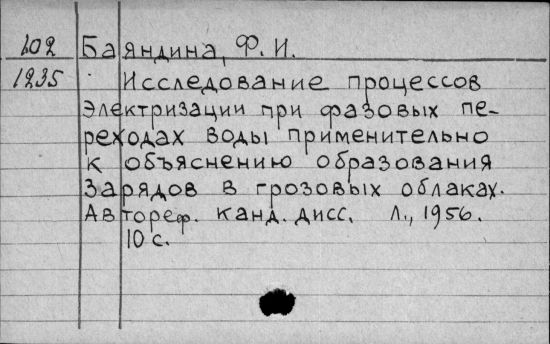 102 Баяндина, Ф. И.
1235 Исследование процессов
электризации при фазовых пе-
реходах воды применительно
к объяснению образования
зарядов в грозовых облаках.
Автореф. канд. дисс. Л., 1956.
10 с.